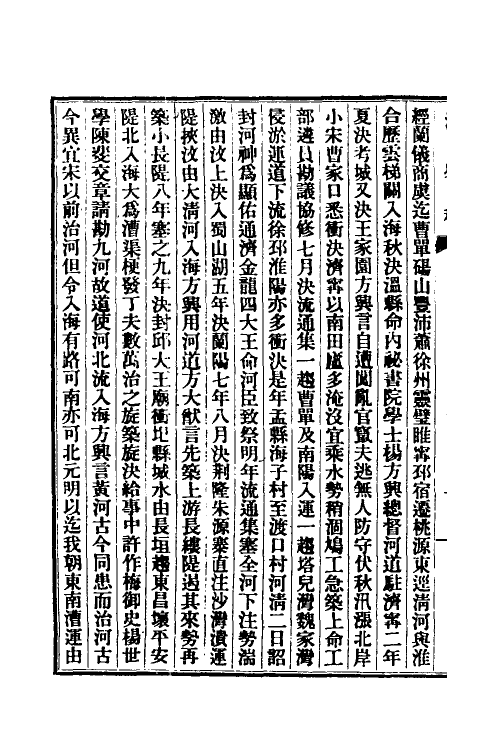 經蘭儀商虞迄曹單碭山豐沛蕭徐州靈璧睢甯邳宿遷桃源東逕淸河與淮
合歷雲梯關入海秋決溫縣命内祕書院學士楊方興總督河道駐濟甯二年
夏決考城又決王家園方興言自遭闖亂官竄夫逃無人防守伏秋汛漲北岸
小宋曹家口悉衝決濟甯以南田廬多淹沒宜乘水勢稍涸鳩工急築上命工
部遴員勘議協修七月決流通集一趨曹單及南陽入運一趨塔兒灣魏家灣
侵淤運道下流徐邳淮陽亦多衝決是年孟縣海子村至渡口村河淸二日詔
封河神爲顯佑通濟金龍四大王命河臣致祭明年流通集塞全河下注勢湍
激由汶上決入蜀山湖五年決蘭陽七年八月決荆隆朱源寨直注沙灣潰運
隄挾汶由大淸河入海方興用河道方大猷言先築上游長縷隄遏其來勢再
築小長隄八年塞之九年決封邱大王廟衝圮縣城水由長垣趨東昌壞平安
隄北入海大爲漕渠梗發丁夫數萬治之旋築旋決給事中許作梅御史楊世
學陳斐交章請勘九河故道使河北流入海方興言黃河古今同患而治河古
今異宜宋以前治河但令入海有路可南亦可北元明以迄我朝東南漕運由